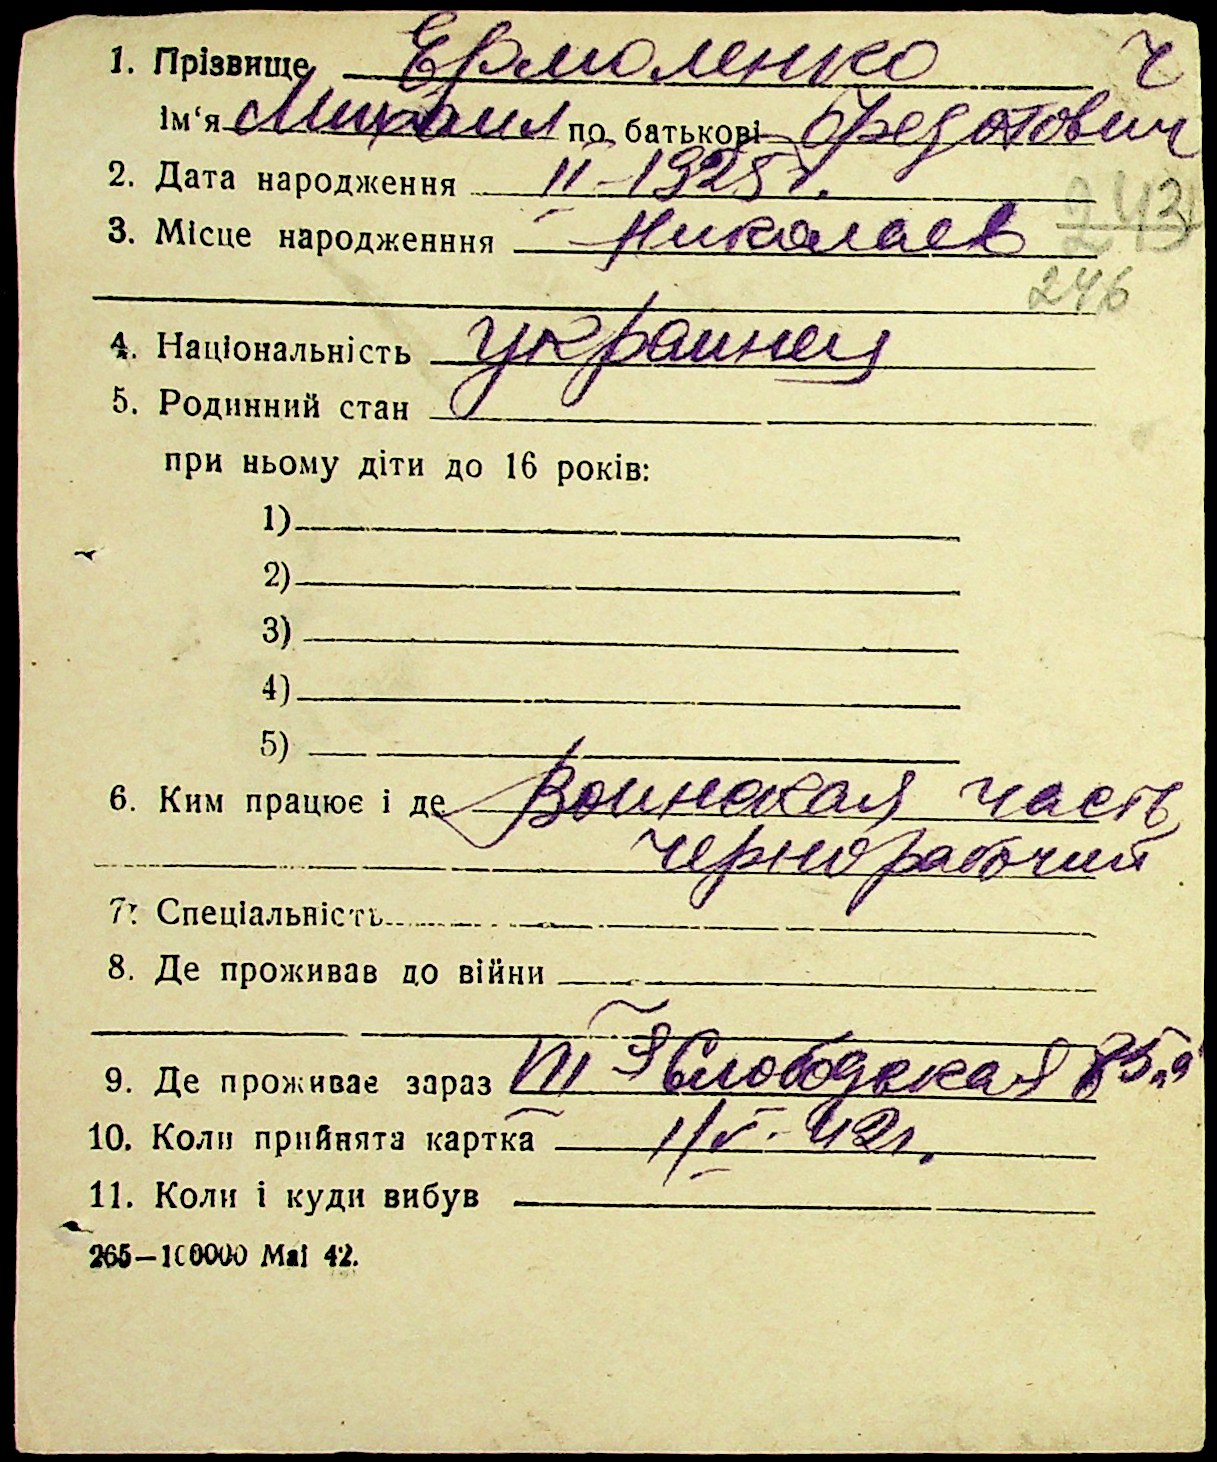 1. Прізвище Ермоленко ч
Ім‘я Михаил по батькові Федотович
2. Дата народження II-1925 г.
3. Місце народженння Николаев 243
246
4. Національність украинец
5. Родинний стан
при ньому діти до 16 років:
1)
2)
3)
4)
5)
6. Ким працює і де Воинская часть
чернорабочий
7. Спеціальність
8. Де проживав до війни
9. Де проживає зараз III Я Слободская 85
10. Коли прийнята картка 1/V-42 г.
11. Коли і куди вибув
265—100000 Маі 42.